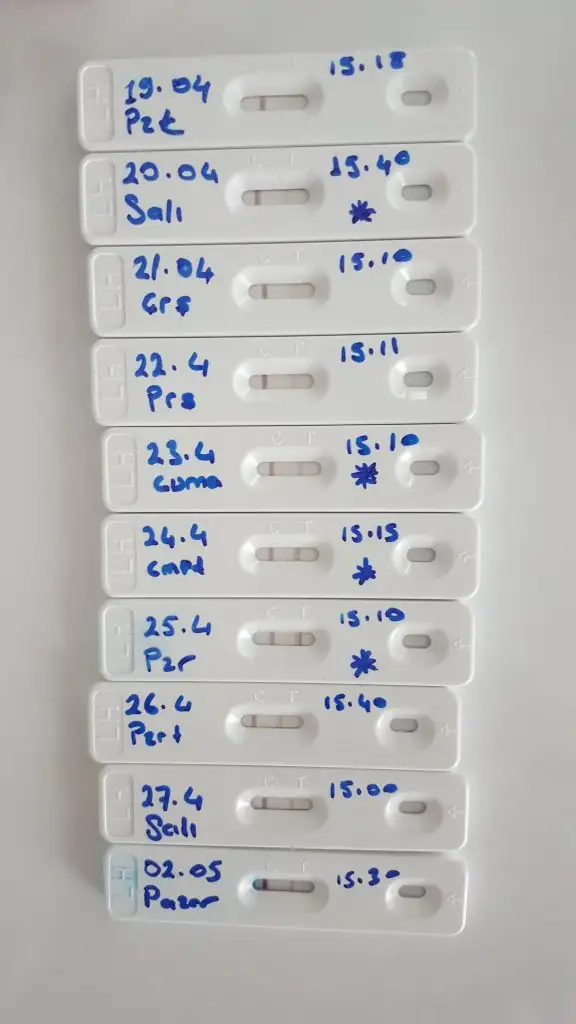 LH
19.04
Pzt
C T
15.18
LH
20.04
Salı
C T
15.40
LH
21.04
Crş
C T
15.10
LH
22.4
Prş
C T
15.11
LH
23.4
Cuma
C T
15.10
LH
24.4
Cmrt
C T
15.15
LH
25.4
Pzr
C T
15.10
LH
26.4
Pzrt
C T
15.40
LH
27.4
Salı
C T
15.00
LH
02.05
Pazar
C T
15.30